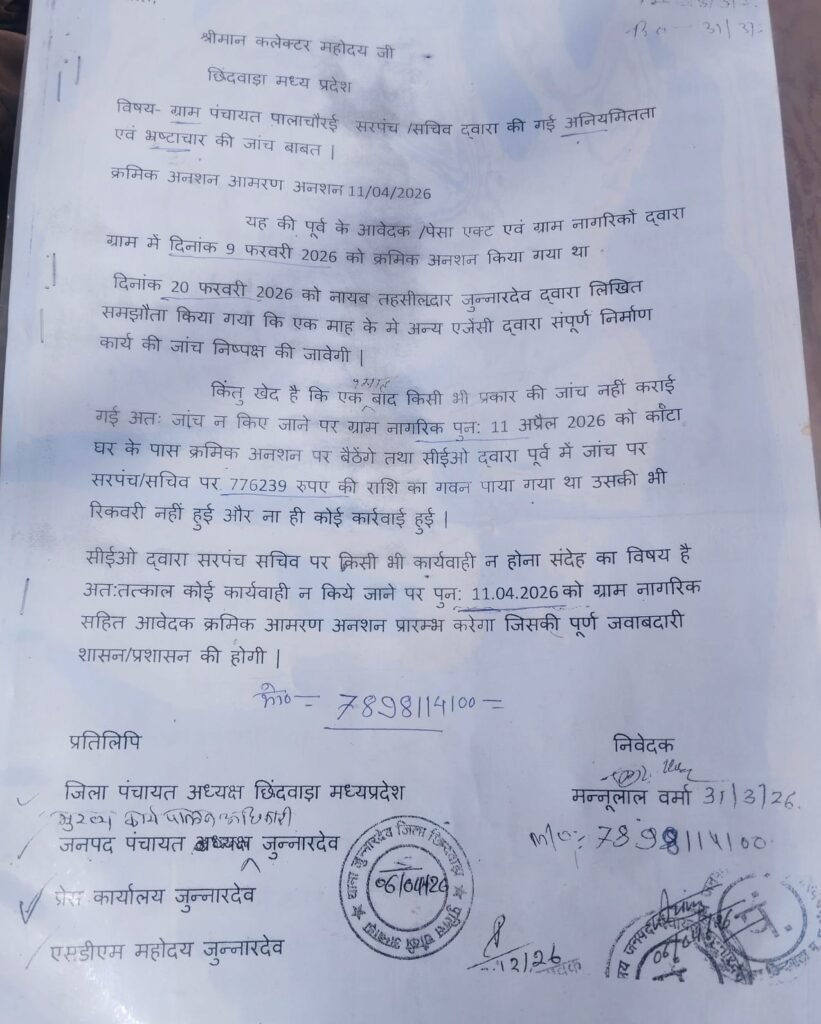 31/3/
श्रीमान कलेक्टर महोदय जी
छिंदवाड़ा मध्य प्रदेश
विषय- ग्राम पंचायत पालाचौरई सरपंच /सचिव द्वारा की गई अनियमितता
एवं भ्रष्टाचार की जांच बाबत |
क्रमिक अनशन आमरण अनशन 11/04/2026
यह की पूर्व के आवेदक /पेसा एक्ट एवं ग्राम नागरिकों द्वारा
ग्राम में दिनांक 9 फरवरी 2026 को क्रमिक अनशन किया गया था
दिनांक 20 फरवरी 2026 को नायब तहसीलदार जुन्नारदेव द्वारा लिखित
समझौता किया गया कि एक माह के मे अन्य एजेंसी द्वारा संपूर्ण निर्माण
कार्य की जांच निष्पक्ष की जावेगी |
किंतु खेद है कि एक माह बाद किसी भी प्रकार की जांच नहीं कराई
गई अतः जांच न किए जाने पर ग्राम नागरिक पुन: 11 अप्रैल 2026 को काँटा
घर के पास क्रमिक अनशन पर बैठेंगे तथा सीईओ द्वारा पूर्व में जांच पर
सरपंच/सचिव पर 776239 रुपए की राशि का गवन पाया गया था उसकी भी
रिकवरी नहीं हुई और ना ही कोई कार्रवाई हुई |
सीईओ द्वारा सरपंच सचिव पर किसी भी कार्यवाही न होना संदेह का विषय है
अत:तत्काल कोई कार्यवाही न किये जाने पर पुन: 11.04.2026 को ग्राम नागरिक
सहित आवेदक क्रमिक आमरण अनशन प्रारम्भ करेगा जिसकी पूर्ण जवाबदारी
शासन/प्रशासन की होगी |
मो०= 7898114100=
प्रतिलिपि
निवेदक
जिला पंचायत अध्यक्ष छिंदवाड़ा मध्यप्रदेश
मन्नूलाल वर्मा 31/3/26
मुख्य कार्यपालिक अधिकारी
जनपद पंचायत अध्यक्ष जुन्नारदेव
mo: 7898114100
प्रेस कार्यालय जुन्नारदेव
एसडीएम महोदय जुन्नारदेव
थाना जुन्नारदेव जिला छिंदवाड़ा
06/04/26